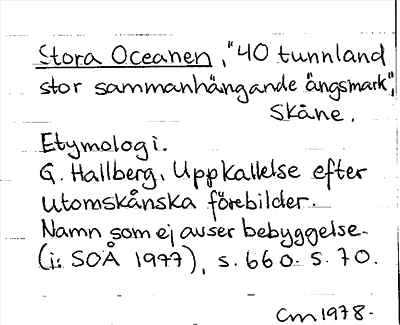 Stora Oceanen, "40 tunnland
stor sammanhängande ängsmark",
Skåne.
Etymologi.
G. Hallberg, Uppkallelse efter
utomskånska förebilder.
Namn som ej avser bebyggelse.
(i: SOÅ 1977), s. 660. s. 70.
Cm 1978.